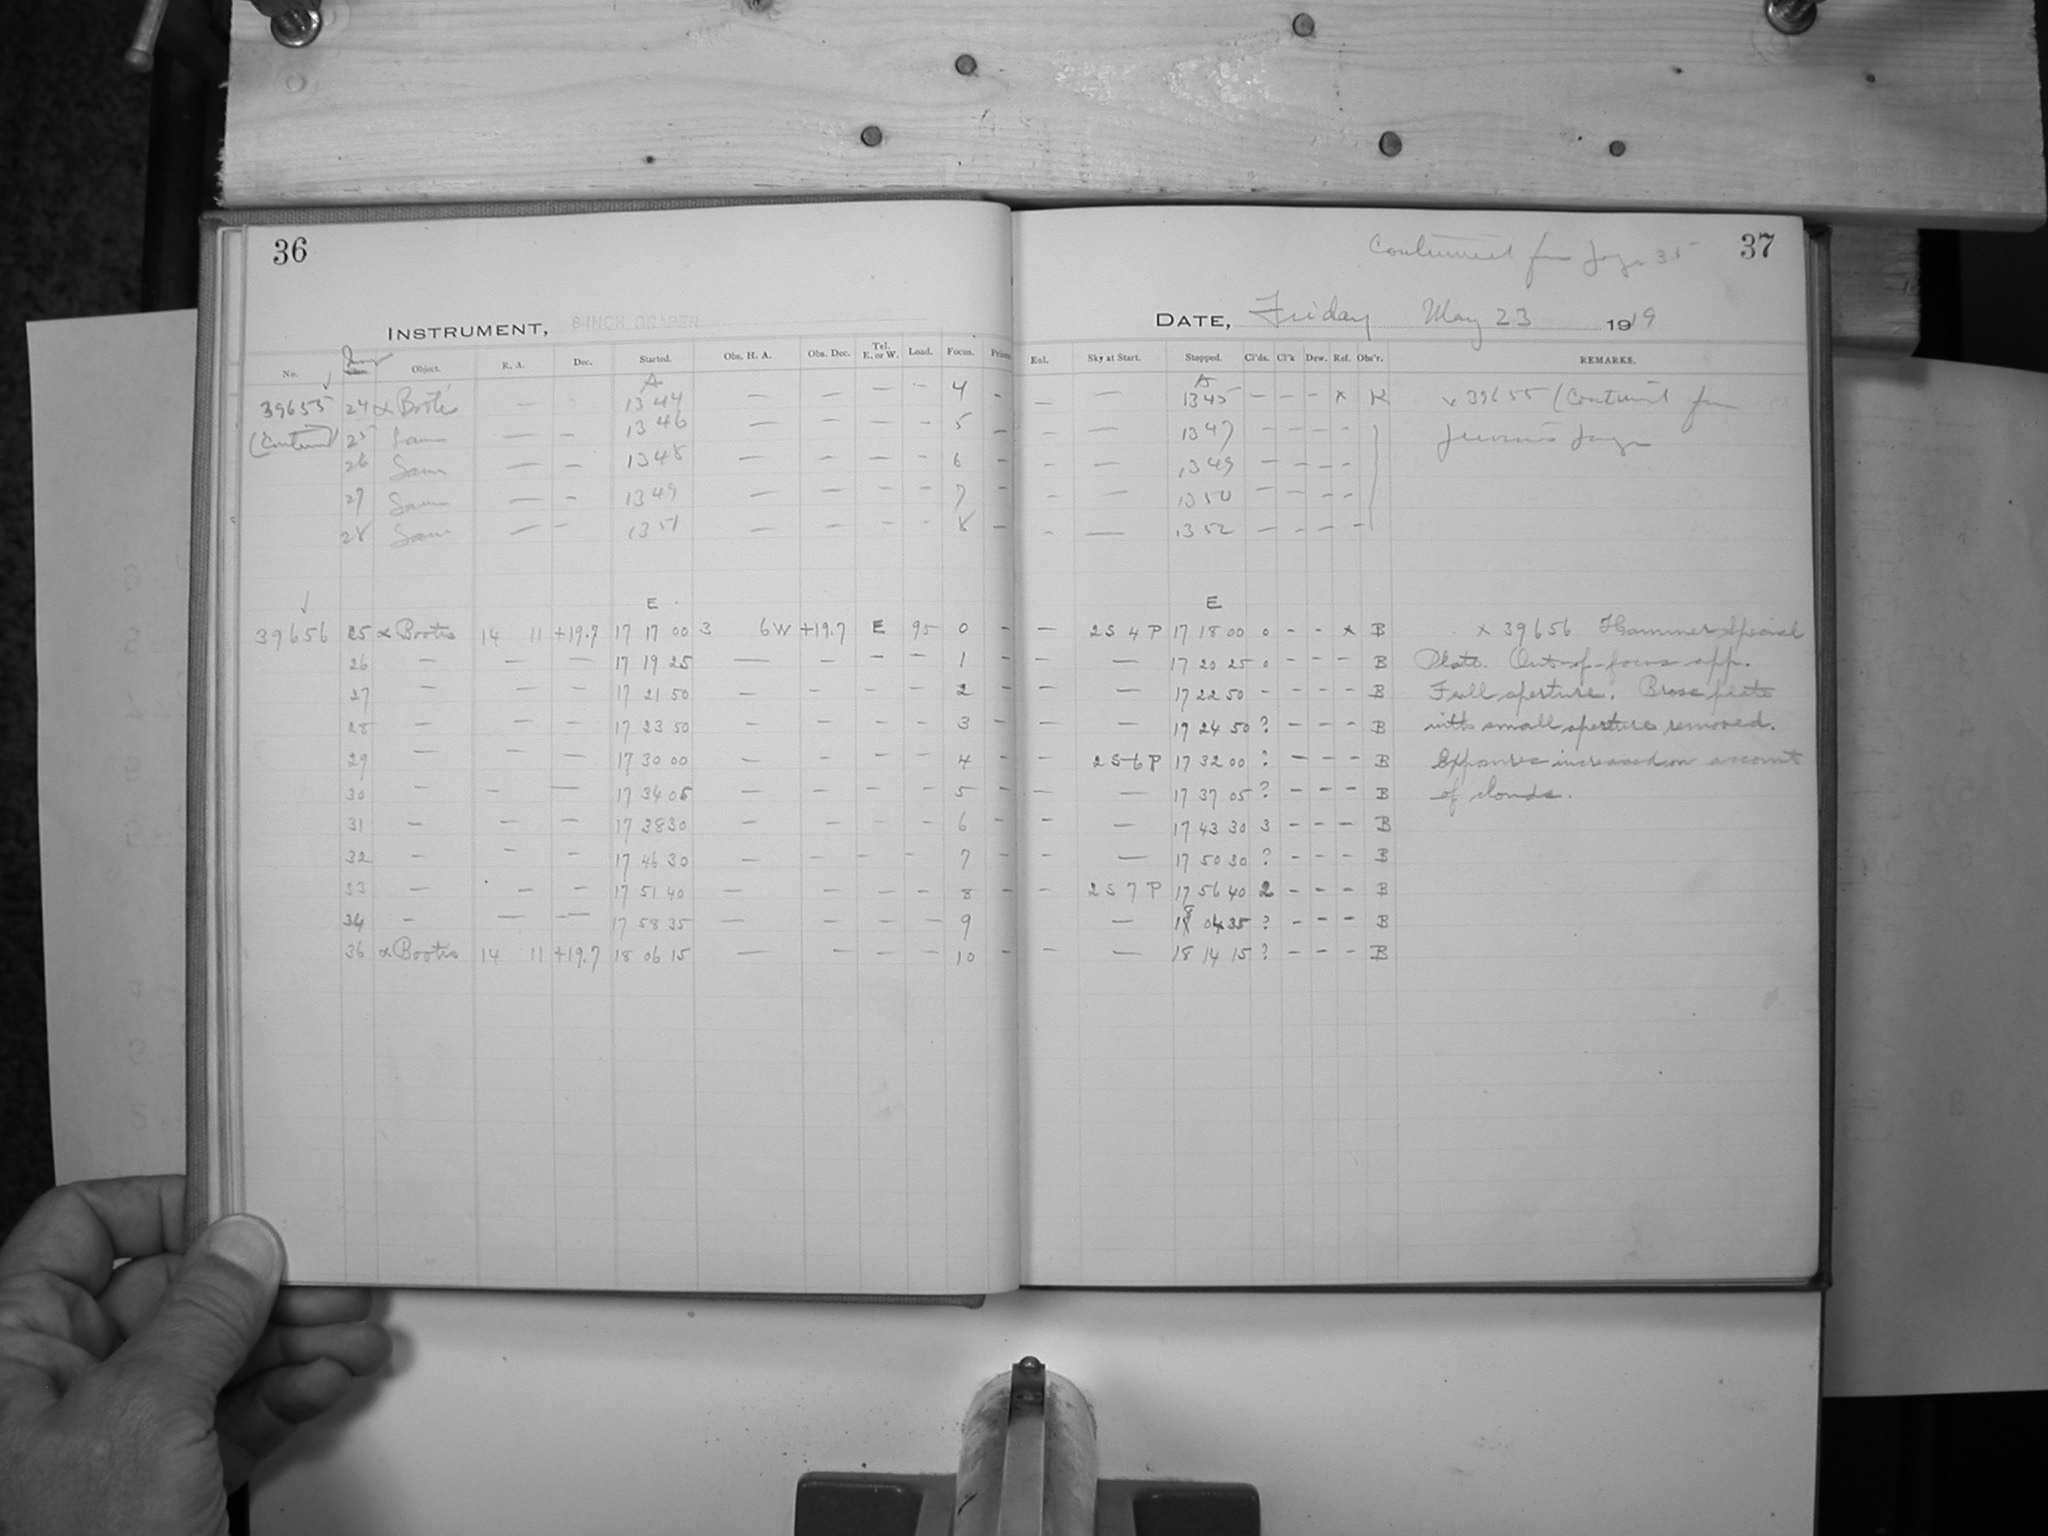 36
INSTRUMENT, 8-INCH DRAPER
No. Object. R. A. Dec. Started. Obs. H. A. Obs. Dec. Tel. E. or W. Load. Focus. Prism
A
39655 24 α Bootis — — 13 44 — — — — 4 —
(Continued) 25 Same — — 13 46 — — — — 5 —
26 Same — — 13 48 — — — — 6 —
27 Same — — 13 49 — — — — 7 —
28 Same — — 13 51 — — — — 8 —
E
39656 25 α Bootis 14 11 +19.7 17 17 00 3 6W +19.7 E 95 0 —
26 — — — 17 19 25 — — — — 1 —
27 — — — 17 21 50 — — — — 2 —
28 — — — 17 23 50 — — — — 3 —
29 — — — 17 30 00 — — — — 4 —
30 — — — 17 34 05 — — — — 5 —
31 — — — 17 38 30 — — — — 6 —
32 — — — 17 46 30 — — — — 7 —
33 — — — 17 51 40 — — — — 8 —
34 — — — 17 58 35 — — — — 9 —
36 α Bootis 14 11 +19.7 18 06 15 — — — — 10 —
Continued from page 35 37
DATE, Friday May 23 1919
Enl. Sky at Start. Stopped. Cl'ds. Cl'k Dew. Ref. Obs'r. REMARKS.
— — 13 45 — — — x K x 39655 (Continued from
— — 13 47 — — — — previous page
— — 13 49 — — — —
— — 13 50 — — — —
— — 13 52 — — — —
E
— 2 S 4 P 17 18 00 0 — — x B x 39656 Hammer Special
— — 17 20 25 0 — — — B Plate. Out-of-focus app.
— — 17 22 50 — — — — B Full aperture. Brass plate
— — 17 24 50 ? — — — B with small aperture removed.
— 2 S 6 P 17 32 00 ? — — — B Exposures increased on account
— — 17 37 05 ? — — — B of clouds.
— — 17 43 30 3 — — — B
— — 17 50 30 ? — — — B
— 2 S 7 P 17 56 40 2 — — — B
— 18 04 35 ? — — — B
— — 18 14 15 ? — — — B